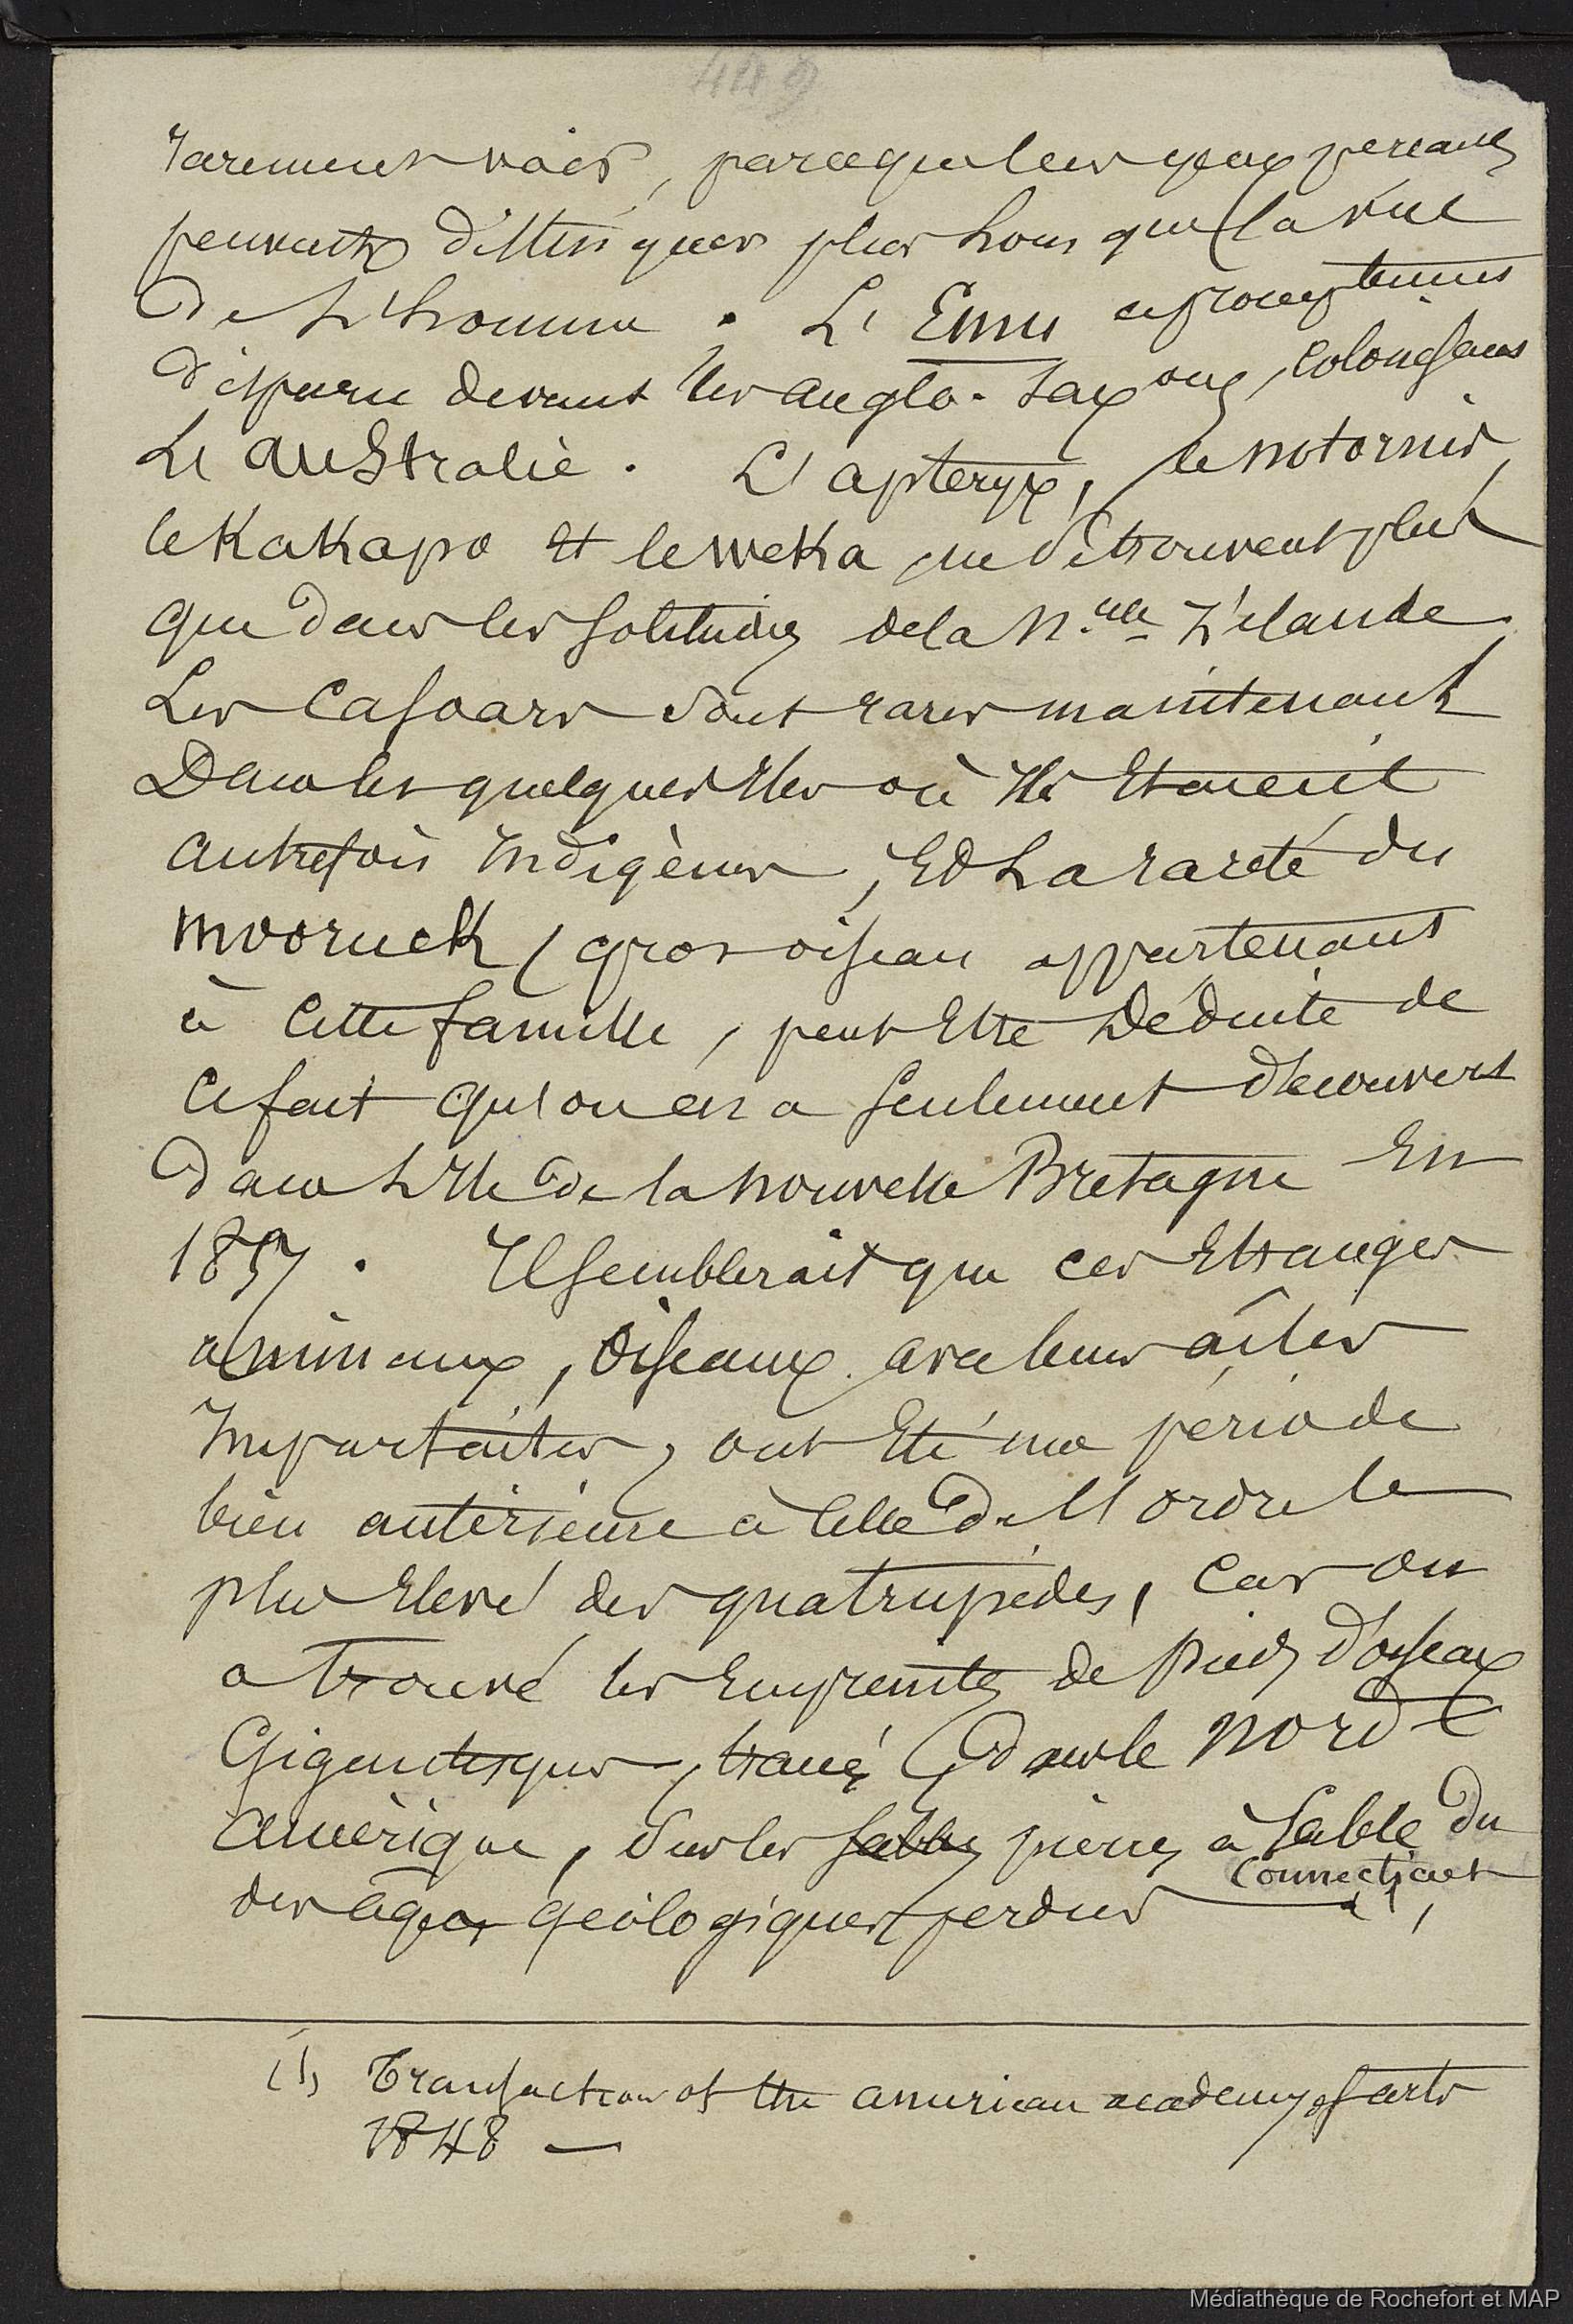 449
rarement vais, parceque leur yeux percants
peuvents distinguer plus loin que la vüe
De L'homme. L'Emu a promptement
disparu devant les anglo-Saxons, colonisans
L'australie. L'apteryx, le notornis,
le Kakapo et le weka, ne se trouvent plus
que dans les solitudes de la N.elle Zélande
Les Casoars sont rares maintenant
Dans les quelques Iles où Ils Etaient
autrefois Indigènes, Et La rareté du
mooruck, gros oiseau appartenant
à cette famille, peut Etre Déduite de
ce fait qu'on en a seulement découvert
dans L'Ile de la nouvelle Bretagne En
1857. Il semblerait que ces Etranges
animaux, oiseaux avec leurs aîles
Imparfaites, ont Eté une période
bien antérieure à celle de L'ordre le
plus Elevé des quatrupèdes, car on
a trouvé les Empreintes de pieds d'oiseaux
Gigantesques, tracés dans le nord
amérique, sur les sables pierres à sable du
Connecticut
des âges géologiques perdus (1),
(1) Transaction of the american academy of arts
1848 —
Médiathèque de Rochefort et MAP